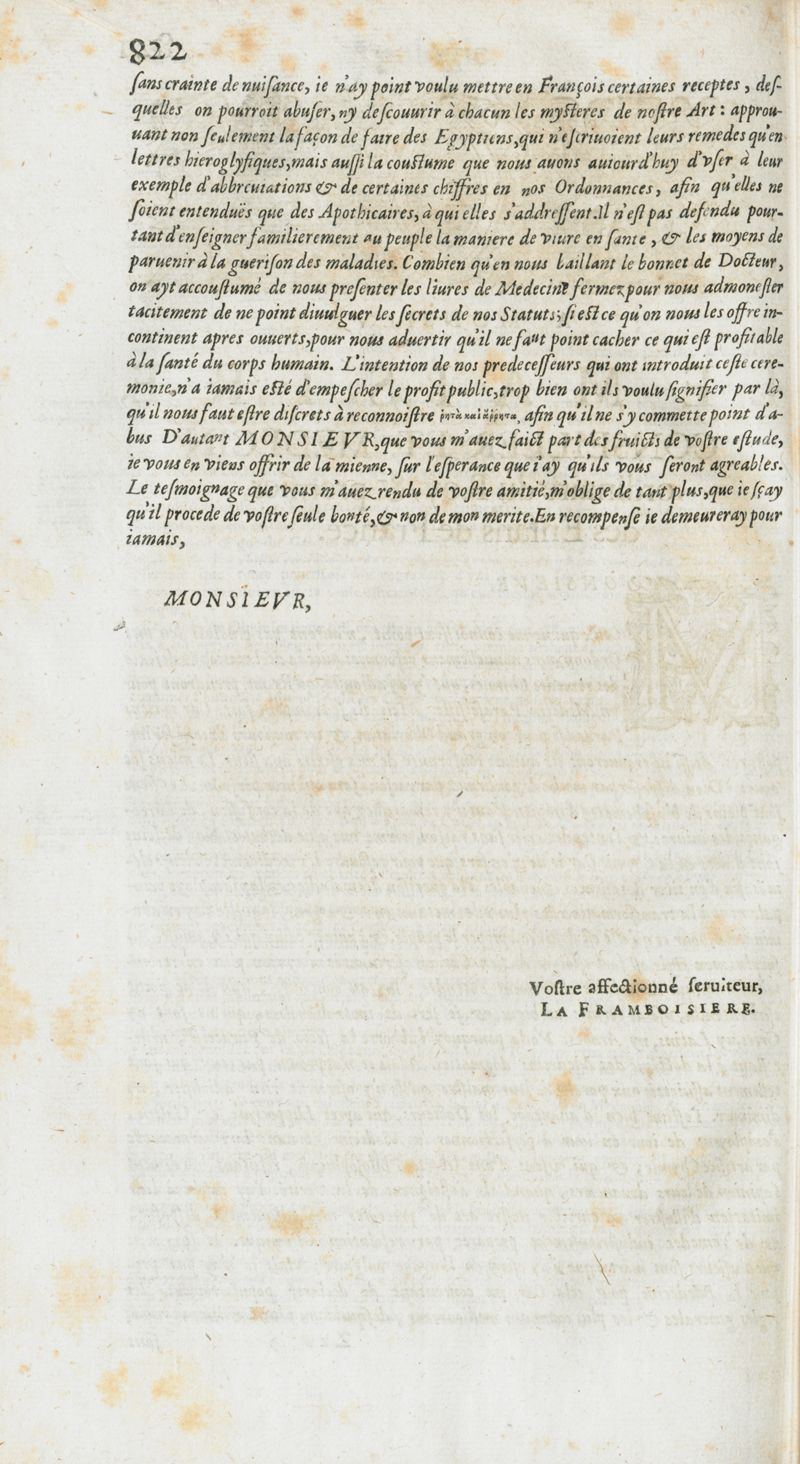 822
ſans crainte de nuiſance, ie n'ay point voulu mettre en François certaines receptes, deſ-
quelles on pourroit abuſer, ny deſcouurir à chacun les myſteres de noſtre Art: approu-
uant non ſeulement la façon de faire des Egyptiens, qui n'eſcriuoient leurs remedes qu'en
lettres hieroglyfiques, mais auſſi la couſtume que nous auons auiourd'huy d'vſer à leur
exemple d'abbreuiations & de certaines chiffres en nos Ordonnances, afin qu'elles ne
ſoient entenduës que des Apothicaires, à qui elles s'addreſſent. Il n'eſt pas defendu pour-
tant d'enſeigner familierement au peuple la maniere de viure en ſante, & les moyens de
paruenir à la gueriſon des maladies. Combien qu'en nous baillant le bonnet de Docteur,
on ayt accouſtumé de nous preſenter les liures de Medecine fermez pour nous admoneſter
tacitement de ne point diuulguer les ſecrets de nos Statuts; ſi eſt ce qu'on nous les offre in-
continent apres ouuerts, pour nous aduertir qu'il ne faut point cacher ce qui eſt profitable
à la ſanté du corps humain. L'intention de nos predeceſſeurs qui ont introduit ceſte cere-
monie, n'a iamais eſté d'empeſcher le profit public, trop bien ont ils voulu ſignifier par là,
qu'il nous faut eſtre diſcrets à reconnoiſtre ῥητὰ καὶ ἄῤῥητα, afin qu'il ne s'y commette point d'a-
bus D'autant MONSIEVR, que vous m'auez faict part des fruicts de voſtre eſtude,
ie vous en viens offrir de la mienne, ſur l'eſperance que i'ay qu'ils vous ſeront agreables.
Le teſmoignage que vous m'auez rendu de voſtre amitié, m'oblige de tant plus, que ie ſçay
qu'il procede de voſtre ſeule bonté, & non de mon merite. En recompenſe ie demeureray pour
iamais,
MONSIEVR,
Voſtre affectionné ſeruiteur,
LA FRAMBOISIERE.